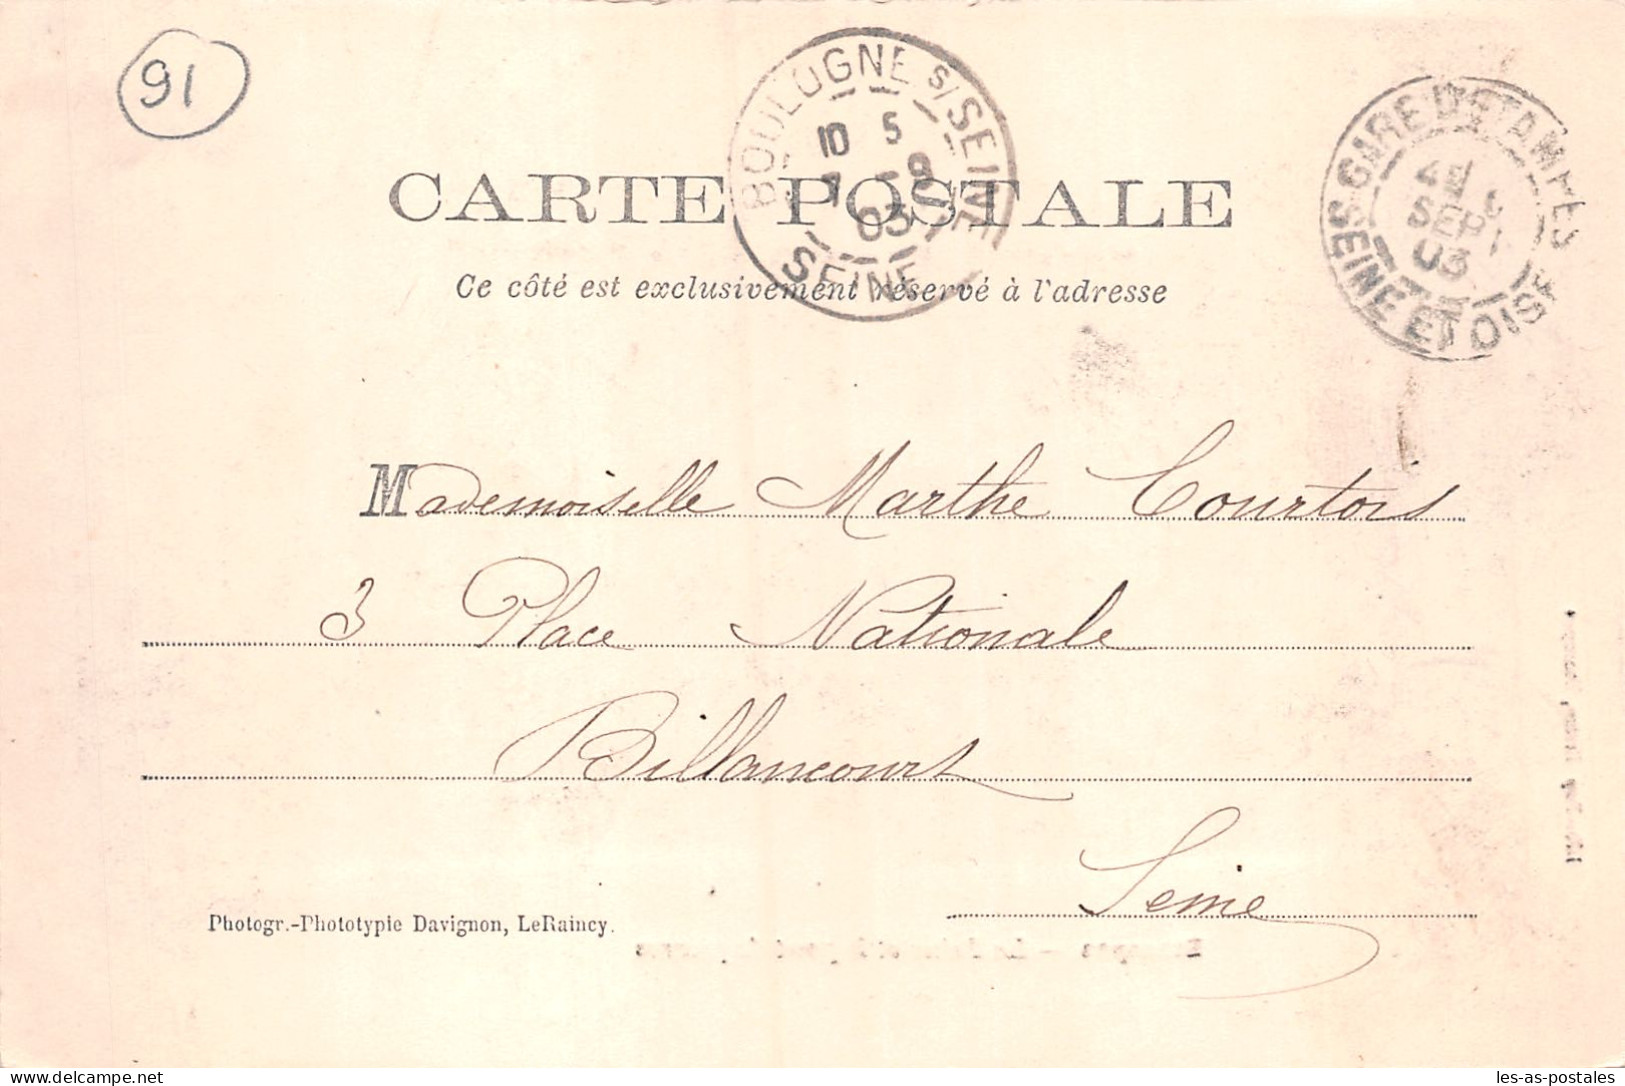 91
BOULOGNE S/ SEINE
10 5
7 -9
03
SEINE
GARE D'ETAMPES
SEP
03
SEINE ET OISE
CARTE POSTALE
Ce côté est exclusivement réservé à l'adresse
Mademoiselle Marthe Courtois
3 Place Nationale
Billancourt
Seine
Photogr.-Phototypie Davignon, LeRaincy.
delcampe.net
les-as-postales